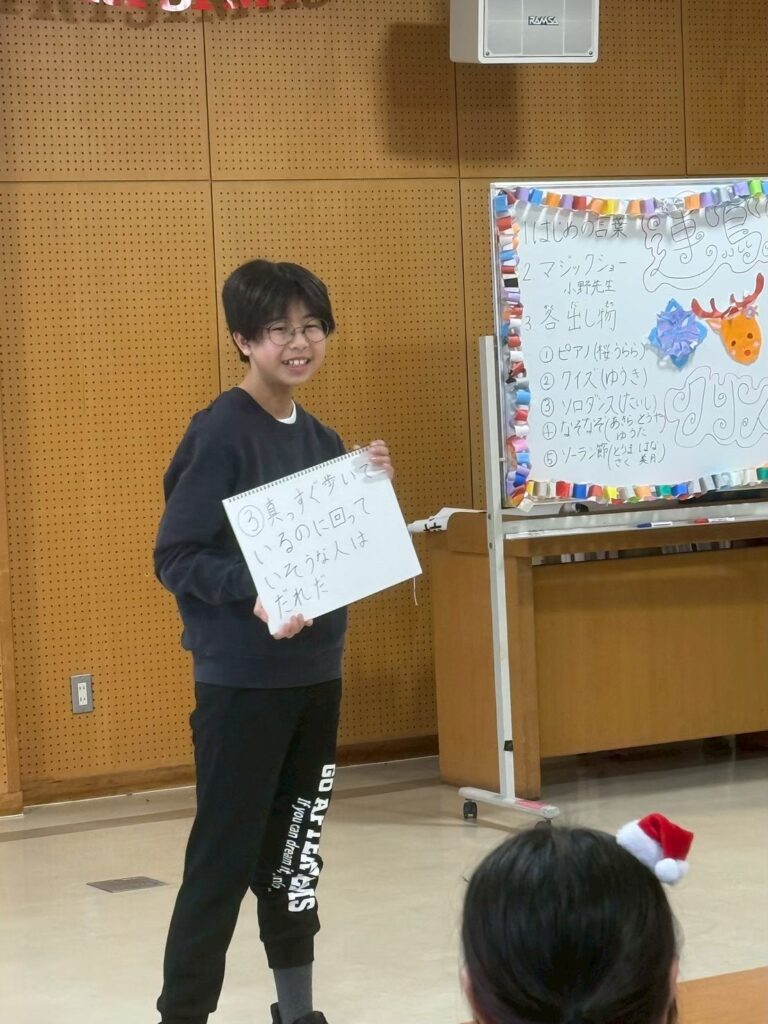 RAMSA
1 はじめの言葉
2 マジックショー
小野先生
3 各出し物
① ピアノ(桜うらら)
② クイズ(ゆうき)
③ ソロダンス(たいし)
④ なぞなぞ(あきらとうや
ゆうた
⑤ ソーラン節(とうま はな
さく 美月)
クリス
③真っすぐ歩いて
いるのに回って
いそうな人は
だれだ
If you can dream it,